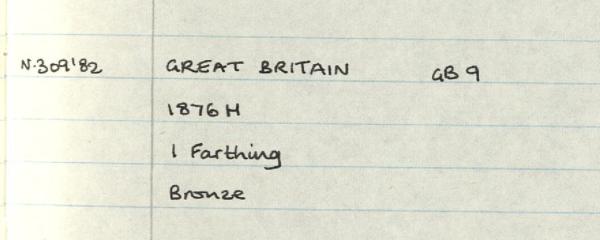 N.309'82 GREAT BRITAIN GB 9
1876 H
1 Farthing
Bronze